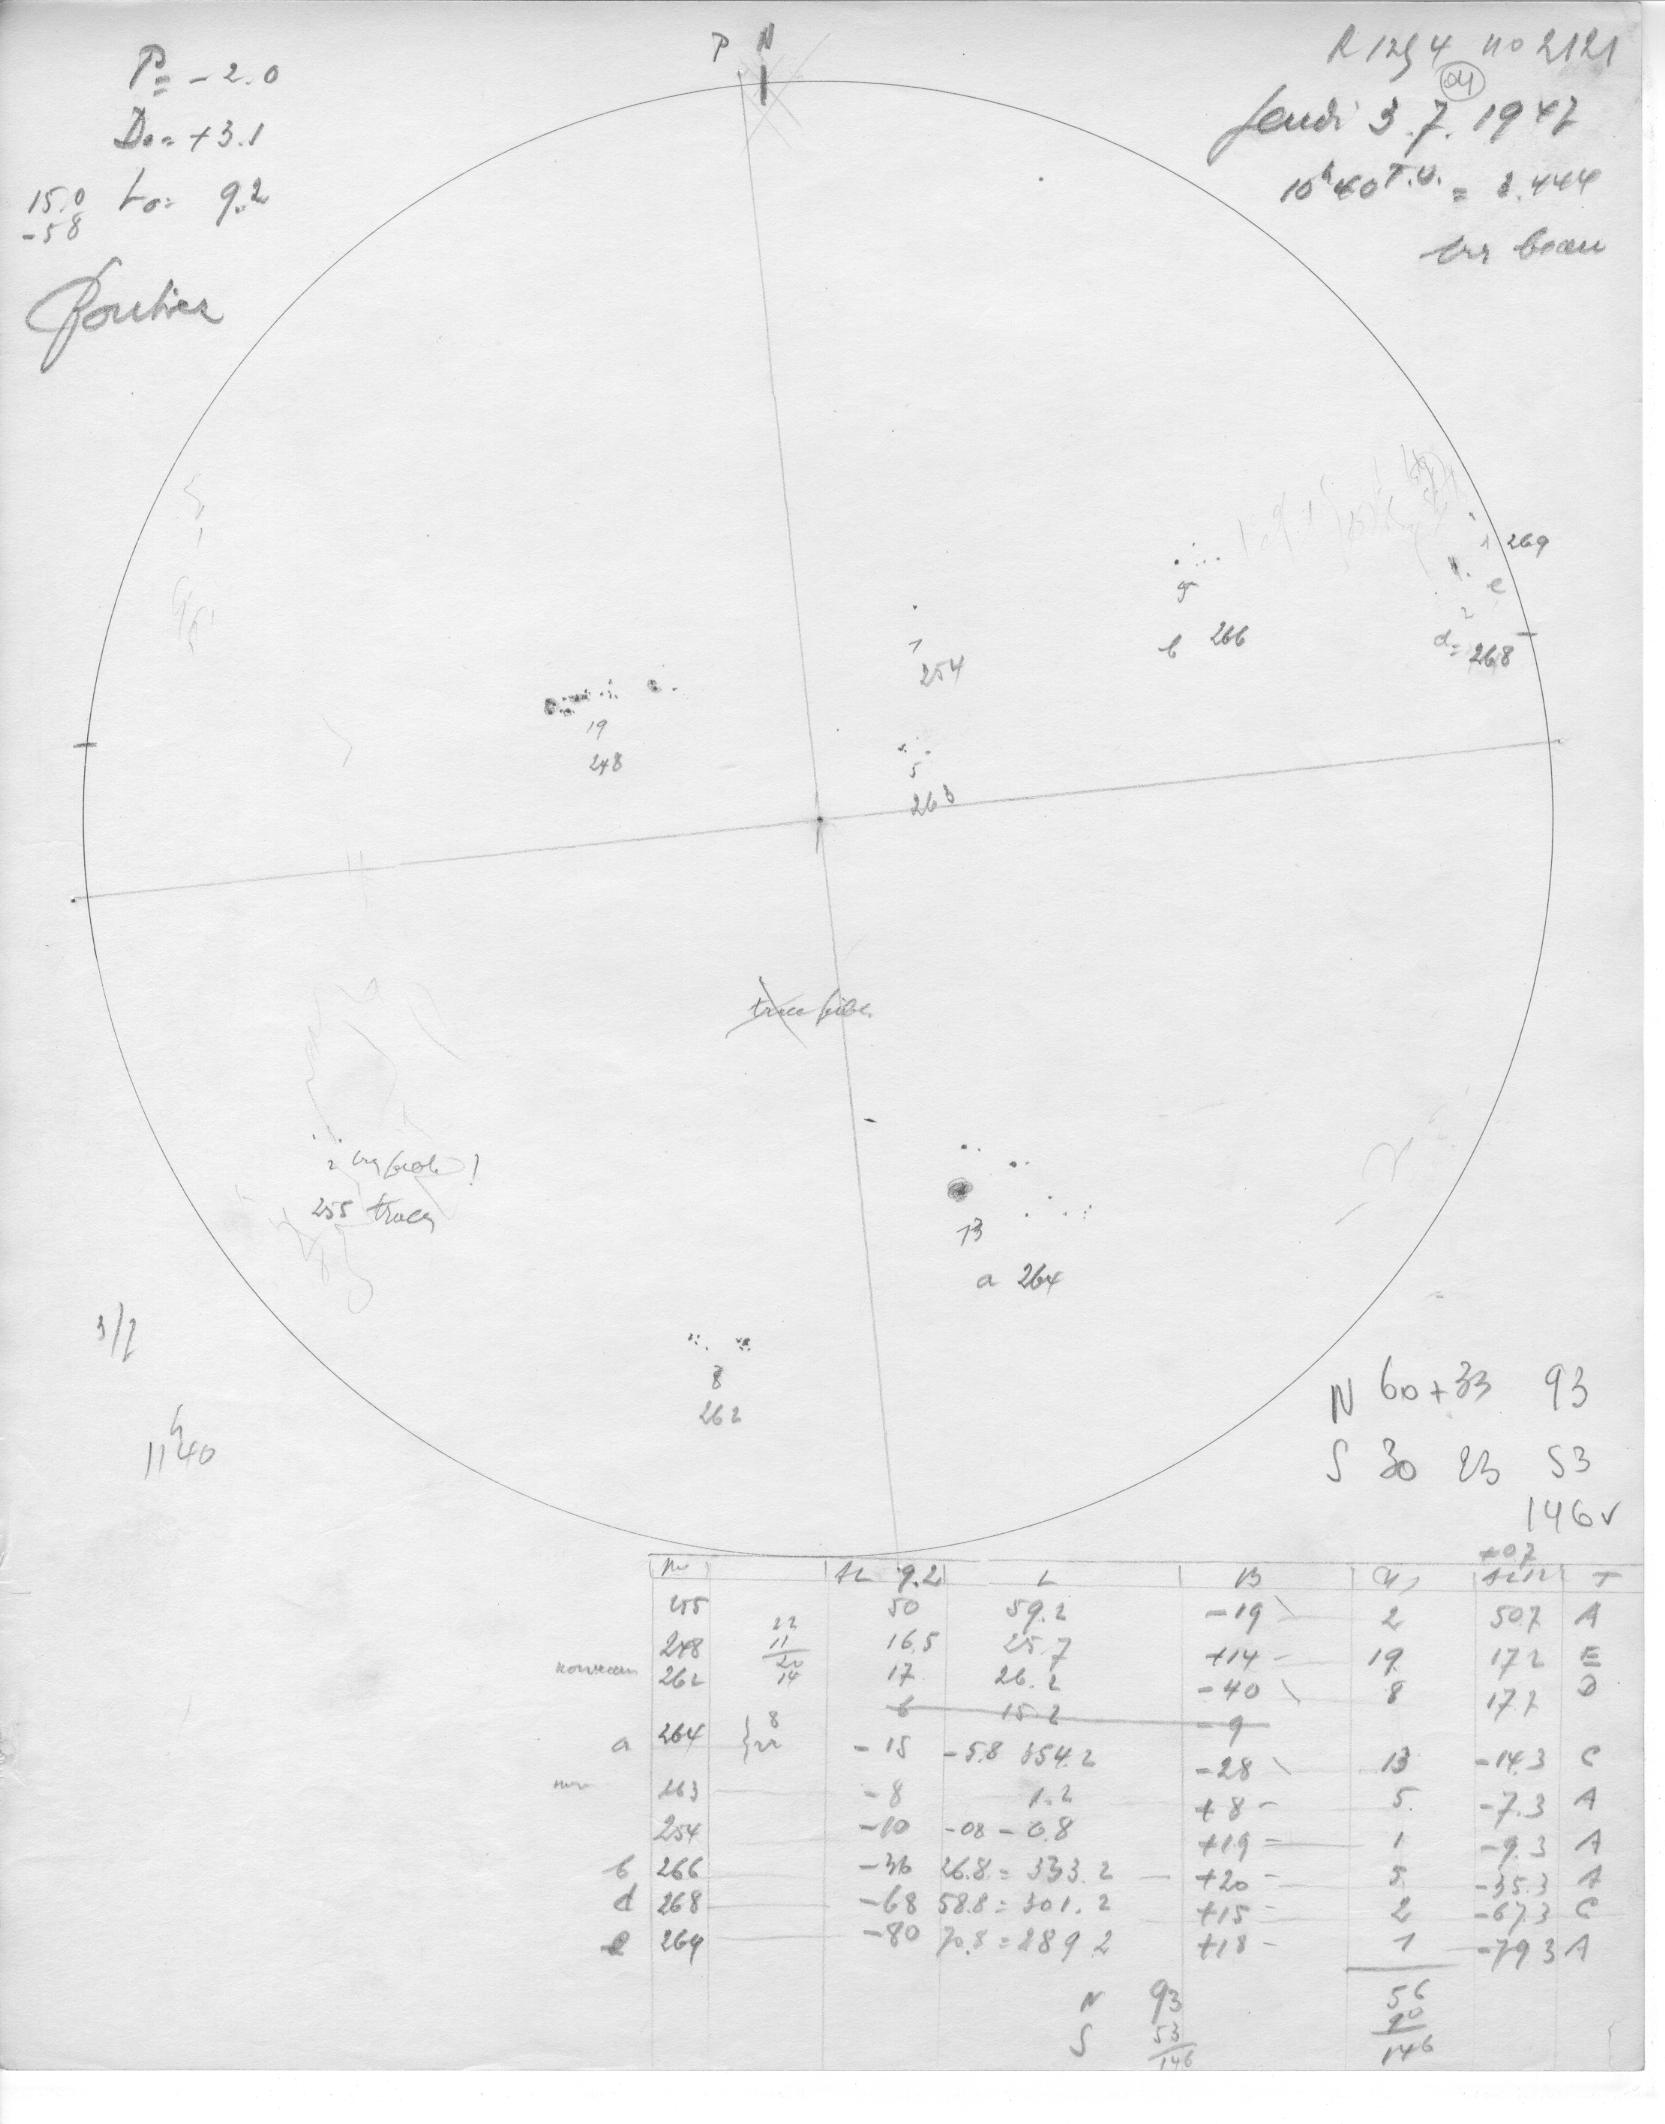 P N
P = -2.0
D₀ = +3.1
15.0 L₀ = 9.2
-58
no 2121
04
Jeudi 3.7.1947
10h40 T.U. = 2.444
beau
1 269
e
5
b 266
2
d = 268
1
254
19
248
5
263
trace faible
2 !
255 traces
13
a 264
8
262
3/7
11h40
N 60+33 93
S 30 23 53
146 v
+07
9.2 L B T
255 50 59.2 -19 2 50.7 A
248 22 11 20 14 16.5 25.7 +14 19 17.2 E
nouveau 262 17 26.2 -40 8 17.7 D
6 15.2 -9
a 264 8 -15 -5.8 354.2 -28 13 -14.3 C
263 -8 1.2 +8 5 -7.3 A
254 -10 -08 -0.8 +19 1 -9.3 A
b 266 -36 26.8 = 333.2 +20 5 -35.3 A
d 268 -68 58.8 = 301.2 +15 2 -67.3 C
e 269 -80 70.8 = 289.2 +18 1 -79.3 A
N 93 56
S 53 90
146 146